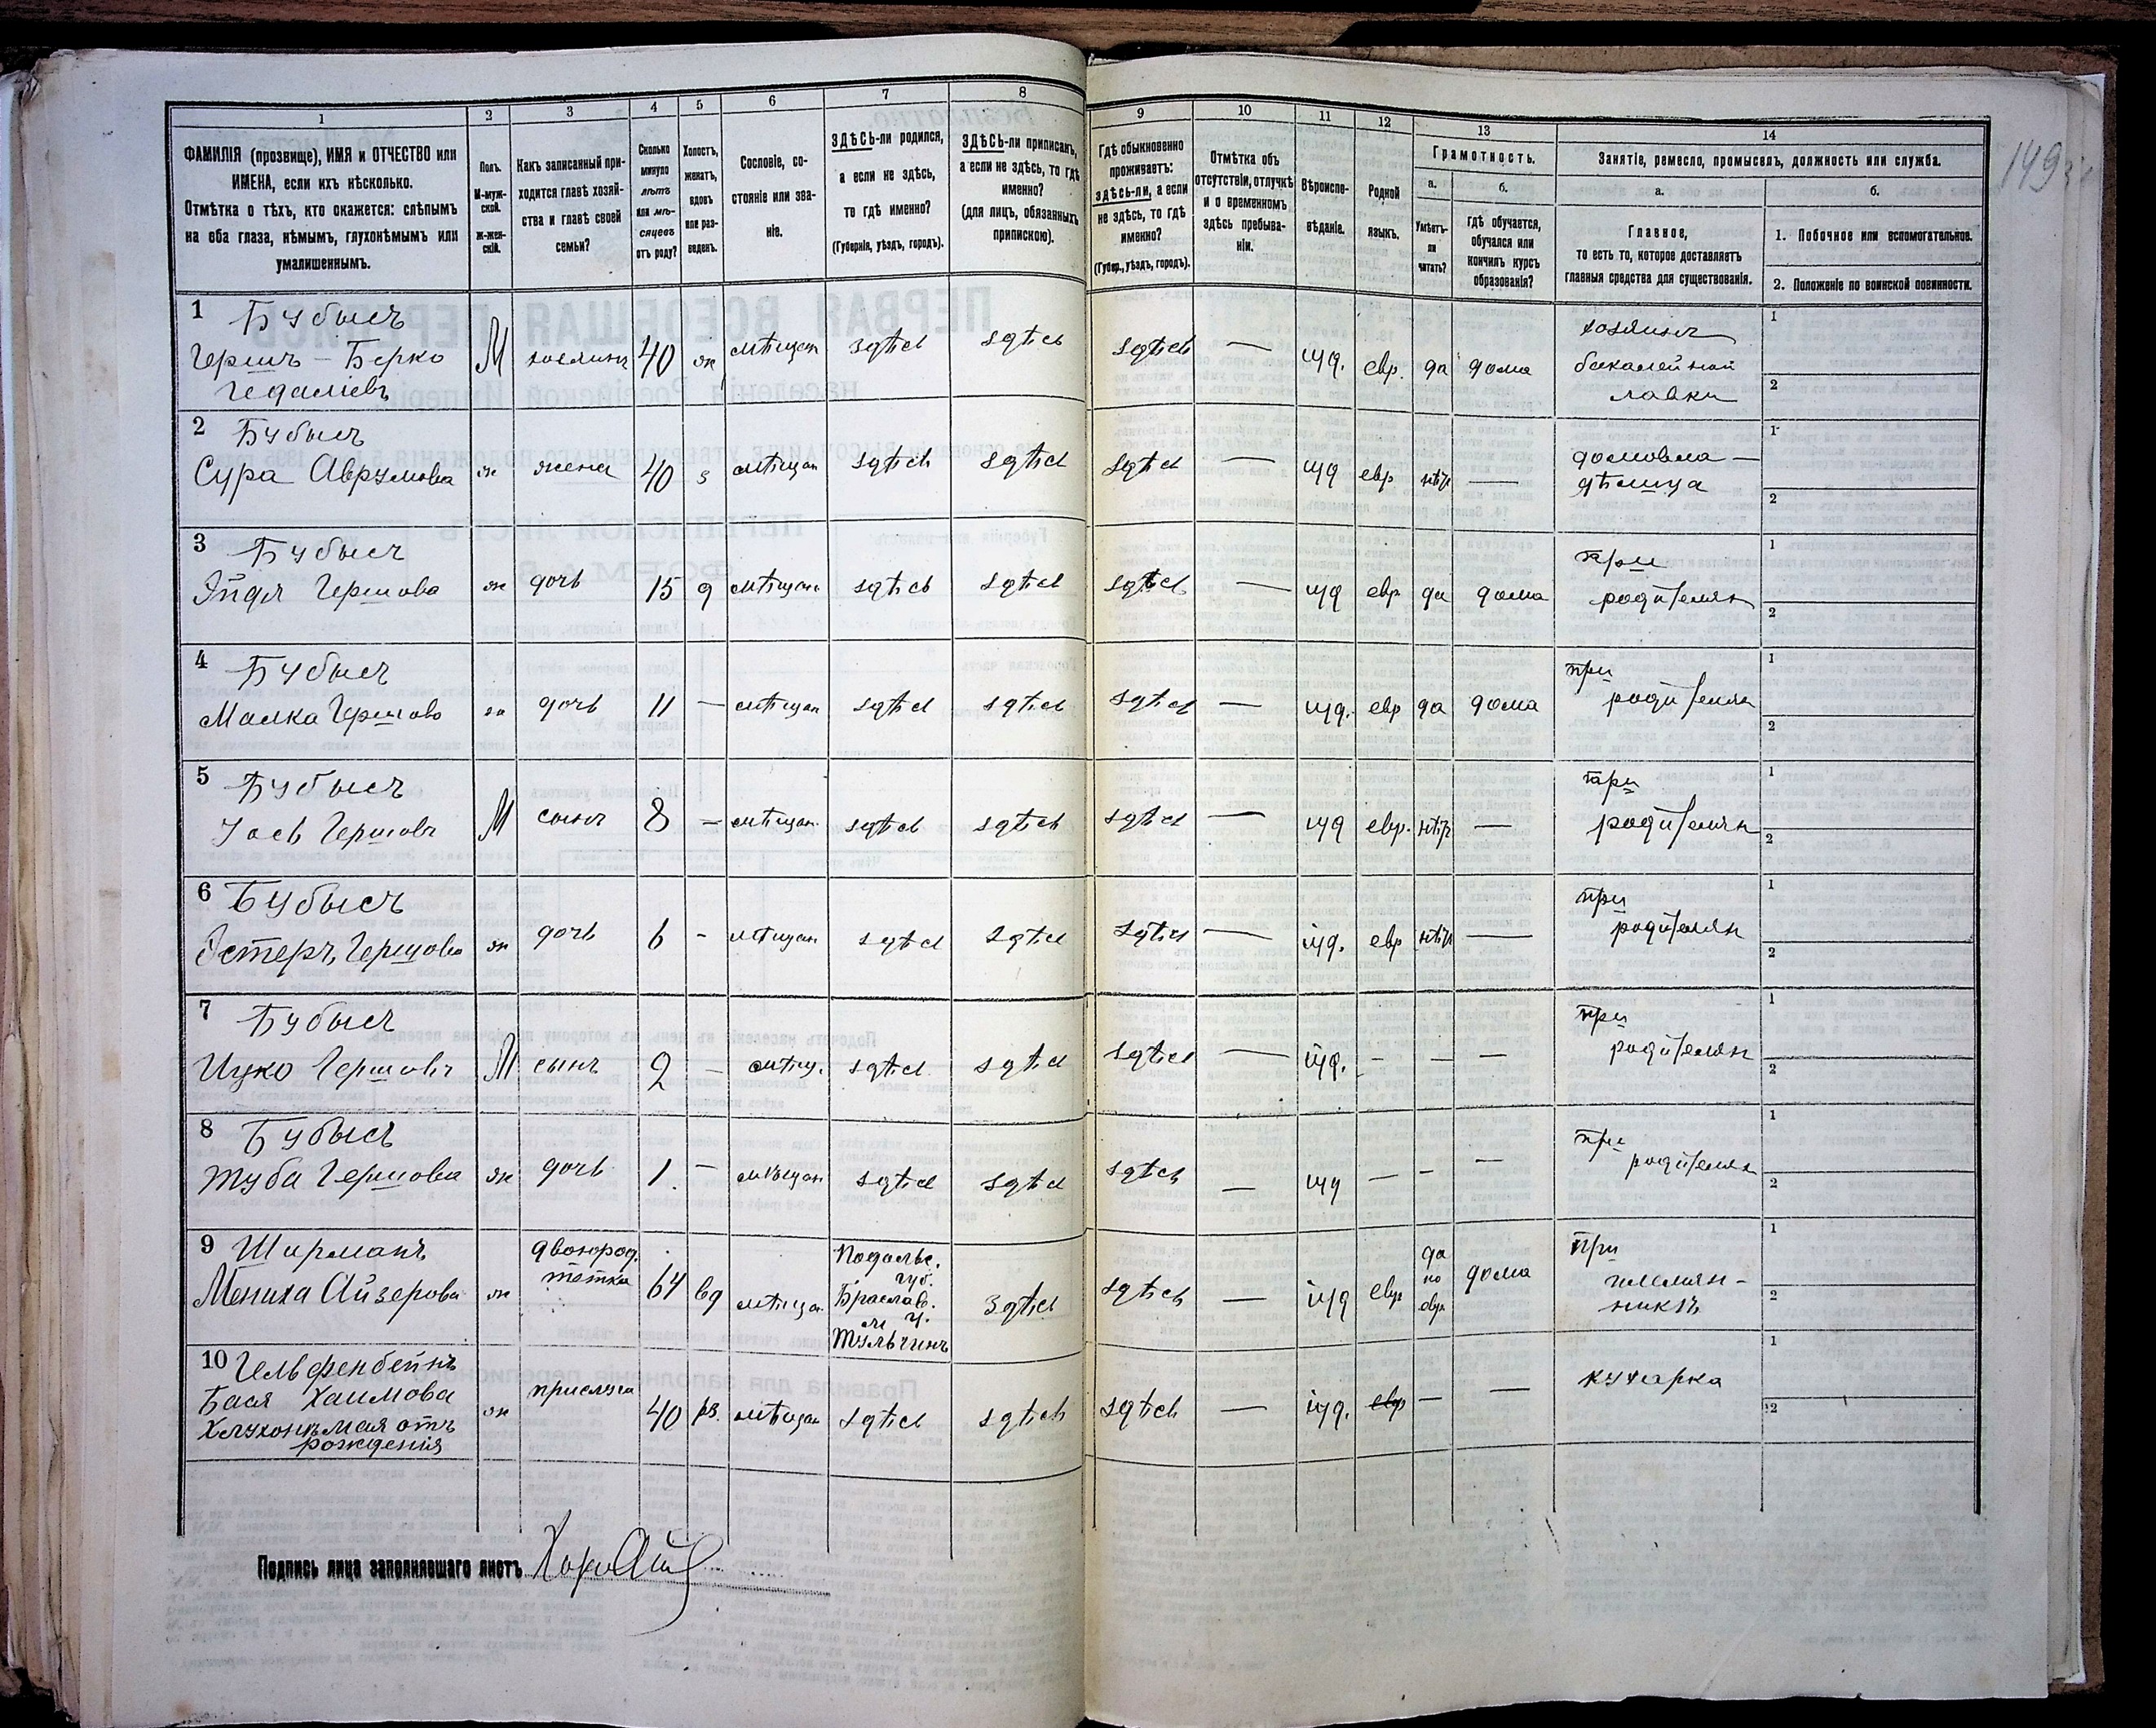 1 2 3 4 5 6 7 8 9 10 11 12 13 14
ФАМИЛІЯ (прозвище), ИМЯ и ОТЧЕСТВО или
ИМЕНА, если ихъ нѣсколько.
Отмѣтка о тѣхъ, кто окажется: слѣпымъ
на оба глаза, нѣмымъ, глухонѣмымъ или
умалишеннымъ.
Полъ.
М-муж-
ской.
Ж-жен-
скій.
Какъ записанный при-
ходится главѣ хозяй-
ства и главѣ своей
семьи?
Сколько
минуло
лѣтъ
или мѣ-
сяцевъ
отъ роду?
Холостъ,
женатъ,
вдовъ
или раз-
веденъ.
Сословіе, со-
стояніе или зва-
ніе.
ЗДѢСЬ-ли родился,
а если не здѣсь,
то гдѣ именно?
(Губернія, уѣздъ, городъ).
ЗДѢСЬ-ли приписанъ,
а если не здѣсь, то гдѣ
именно?
(для лицъ, обязанныхъ
припискою).
Гдѣ обыкновенно
проживаетъ:
здѣсь-ли, а если
не здѣсь, то гдѣ
именно?
(Губер., уѣздъ, городъ).
Отмѣтка объ
отсутствіи, отлучкѣ
и о временномъ
здѣсь пребыва-
ніи.
Вѣроиспо-
вѣданіе.
Родной
языкъ.
Грамотность.
а. б.
Умѣетъ-
ли
читать?
Гдѣ обучается,
обучался или
кончилъ курсъ
образованія?
Занятіе, ремесло, промыселъ, должность или служба.
а. б.
Главное,
то есть то, которое доставляетъ
главныя средства для существованія.
1. Побочное или вспомогательное.
2. Положеніе по воинской повинности.
149
1 Бубысъ
Гершъ - Берко
Гедаліевъ
М хозяинъ 40 ж мѣщан здѣсь здѣсь здѣсь — іуд. евр. да дома
хозяинъ
бакалейной
лавки
1
2
2 Бубысъ
Сура Аврумова ж жена 40 з мѣщан здѣсь здѣсь здѣсь — іуд евр нѣтъ —
домовла-
дѣлица
1
2
3 Бубысъ
Эйдл Гершова ж дочь 15 д мѣщан здѣсь здѣсь здѣсь — іуд евр да дома
при
родителях
1
2
4 Бубысъ
Малка Гершова ж дочь 11 — мѣщан здѣсь здѣсь здѣсь — іуд. евр да дома
при
родителях
1
2
5 Бубысъ
Уось Гершовъ М сынъ 8 — мѣщан. здѣсь здѣсь здѣсь — іуд евр. нѣтъ —
при
родителях
1
2
6 Бубысъ
Эстеръ Гершова ж дочь 6 - мѣщан здѣсь здѣсь здѣсь — іуд. евр нѣтъ —
при
родителях
1
2
7 Бубысъ
Ицко Гершовъ М сынъ 2 — мѣщ. здѣсь здѣсь здѣсь — іуд. - — —
при
родителях
1
2
8 Бубысъ
Туба Гершова ж дочь 1. — мѣщан здѣсь здѣсь здѣсь — іуд — - —
при
родителях
1
2
9 Ширманъ
Мениха Айзерова ж
двоюрод.
тетка
64 вд мѣщан
Подольс.
губ.
Браслав.
у.
м. Тульчинъ
здѣсь здѣсь — іуд евр
да
по
евр
дома
При
племян-
никѣ
1
2
10 Гельфенбейнъ
Бася Хаимова
Хлухонѣмая отъ
рожденія
ж прислуга 40 рз. мѣщан здѣсь здѣсь здѣсь — іуд. евр — —
кухарка
1
2
Подпись лица заполнившаго листъ